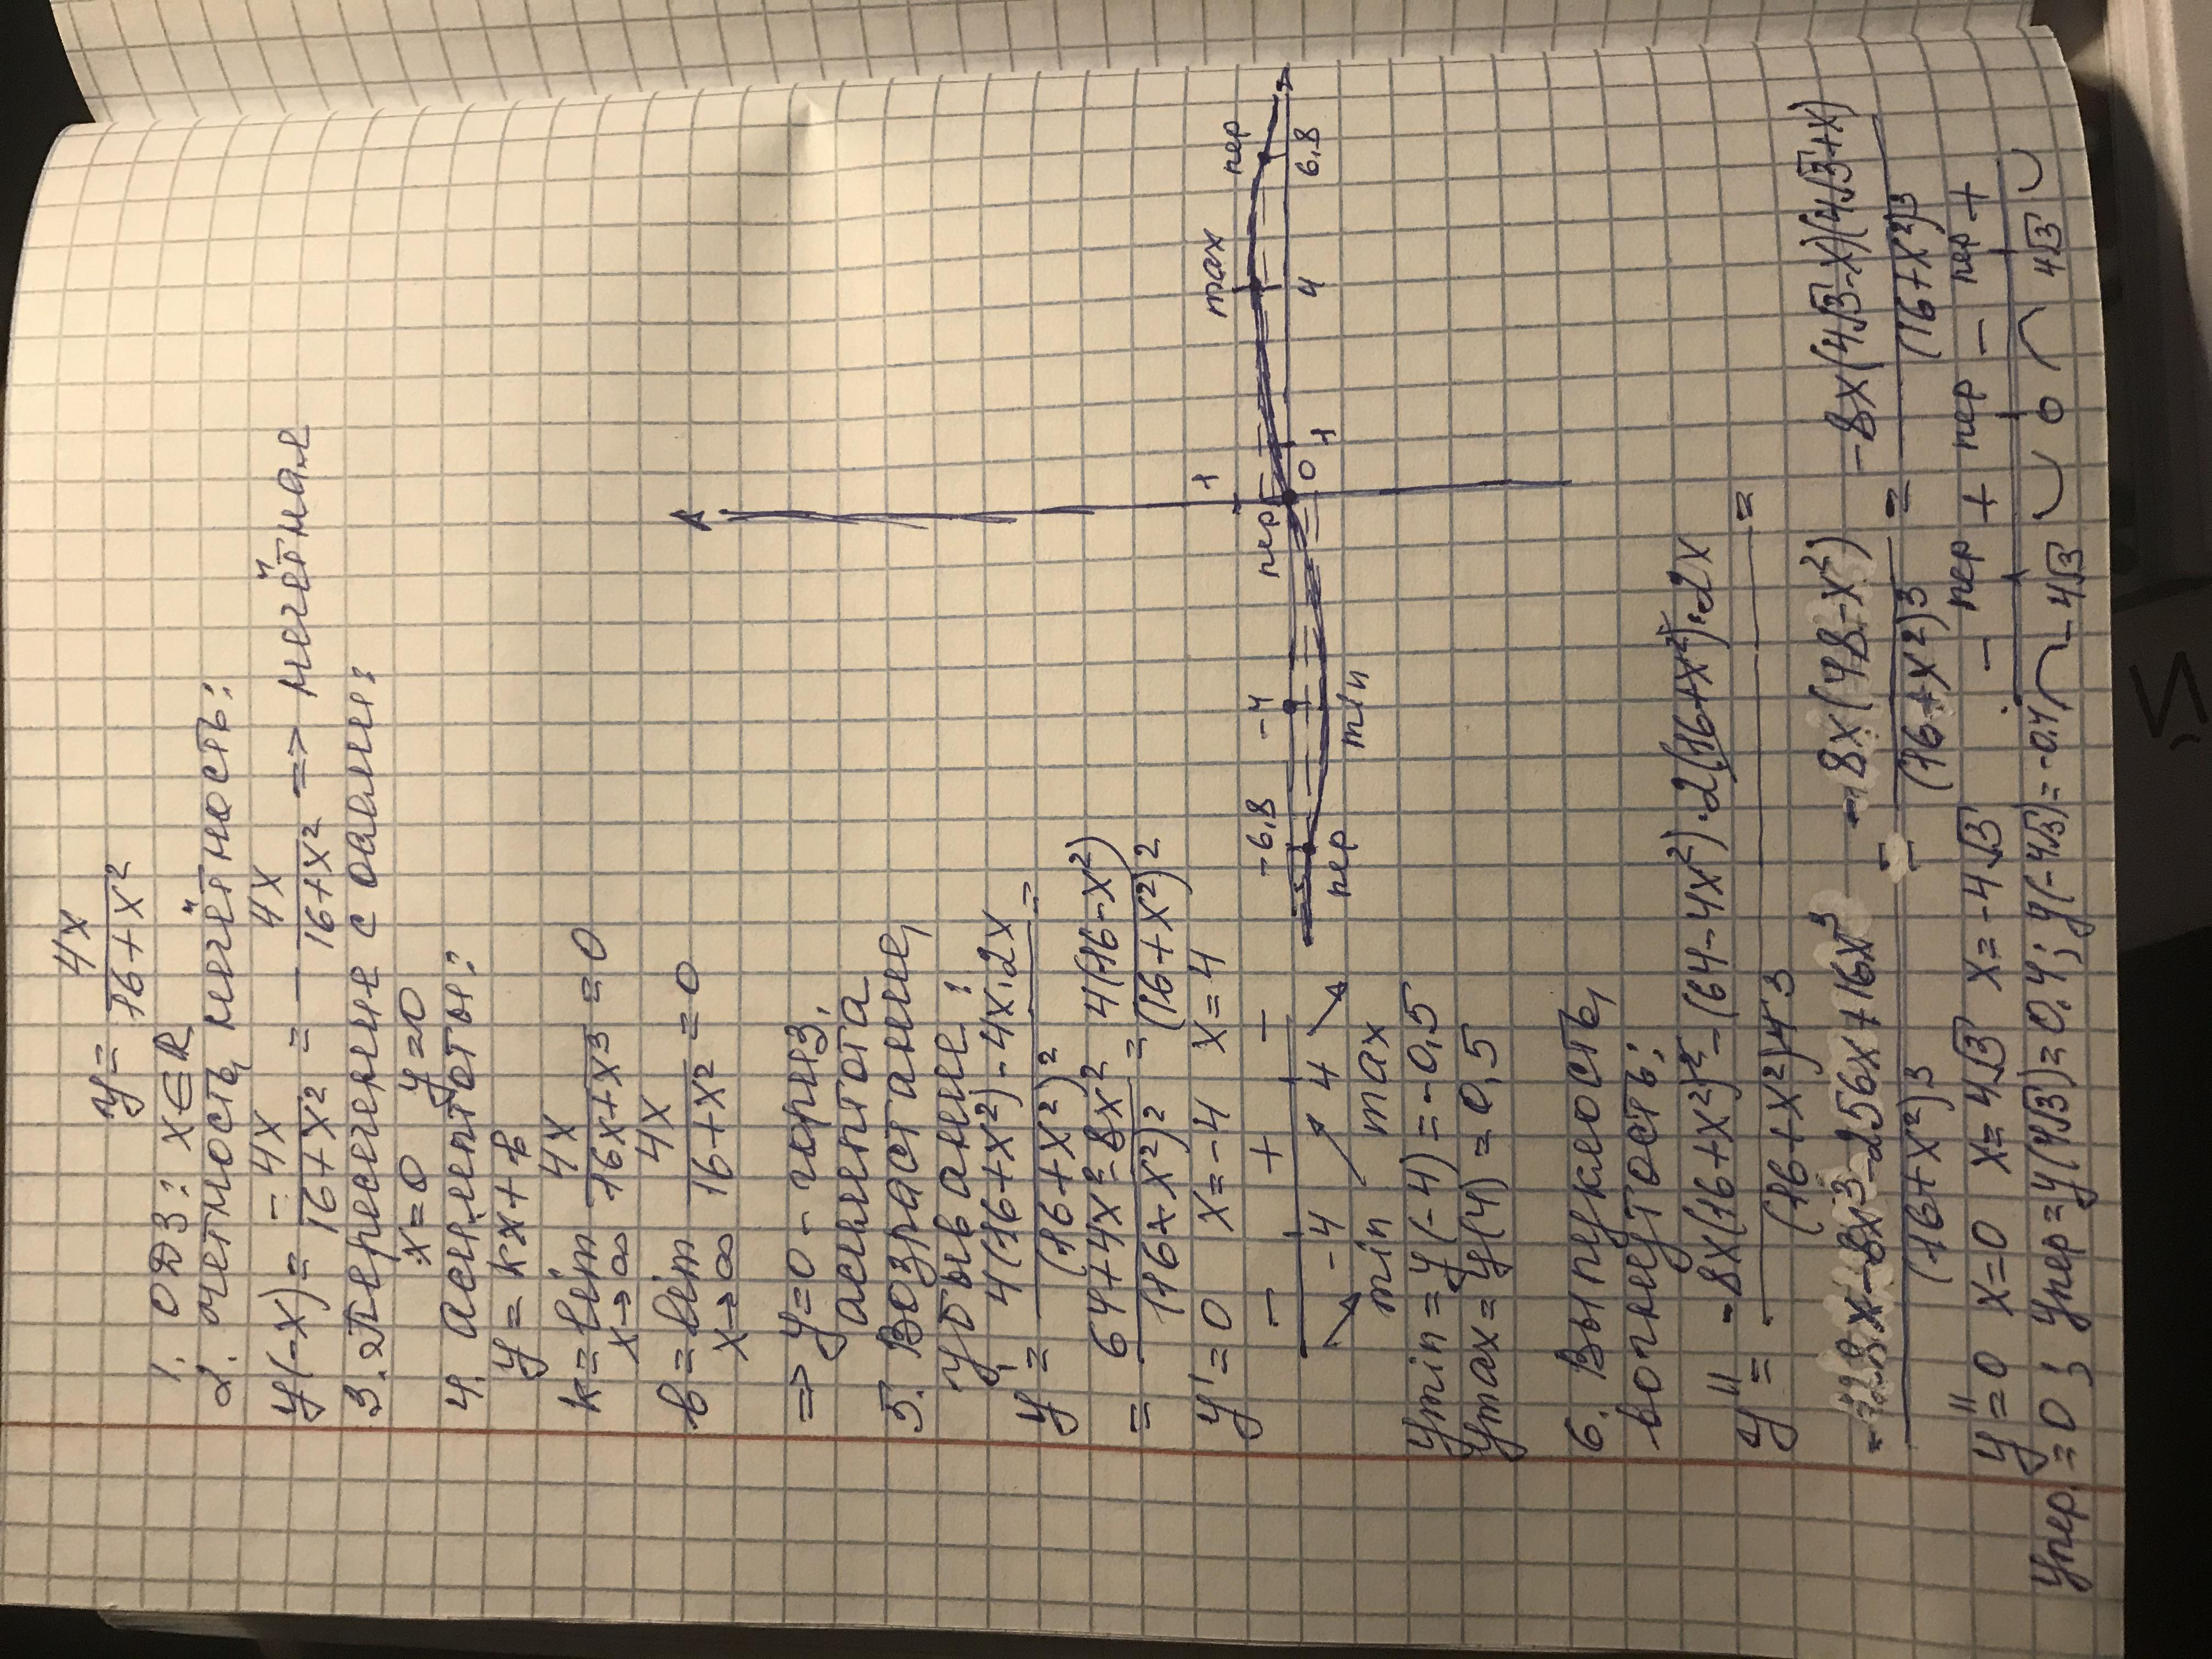 y = 4x / 16+x²
1. ОДЗ: x∈R
2. Чётность, нечётность:
y(-x) = -4x / 16+x² = - 4x / 16+x² => нечётная
3. Пересечение с осями:
x=0 y=0
4. Асимптоты:
y = kx+b
k = lim x→∞ 4x / 16x+x³ = 0
b = lim x→∞ 4x / 16+x² = 0
=> y=0 - гориз. асимптота
5. Возрастание, убывание:
y' = 4(16+x²)-4x·2x / (16+x²)² =
= 64+4x²-8x² / (16+x²)² = 4(16-x²) / (16+x²)²
y'=0 x=-4 x=4
- + -
-4 4
min max
ymin = y(-4) = -0,5
ymax = y(4) = 0,5
6. Выпуклость, вогнутость:
y'' = -8x(16+x²)²-(64-4x²)·2(16+x²)·2x / (16+x²)⁴ =
= -128x-8x³-256x+16x³ / (16+x²)³ = -8x(48-x²) / (16+x²)³ = -8x(4√3-x)(4√3+x) / (16+x²)³
y''=0 x=0 x=4√3 x=-4√3
- пер + пер - пер +
-4√3 0 4√3
yпер=0; yпер=y(4√3)=0,4; y(-4√3)=-0,4
1
max
пер
пер
-6,8 -4 0 1 4 6,8
min
пер